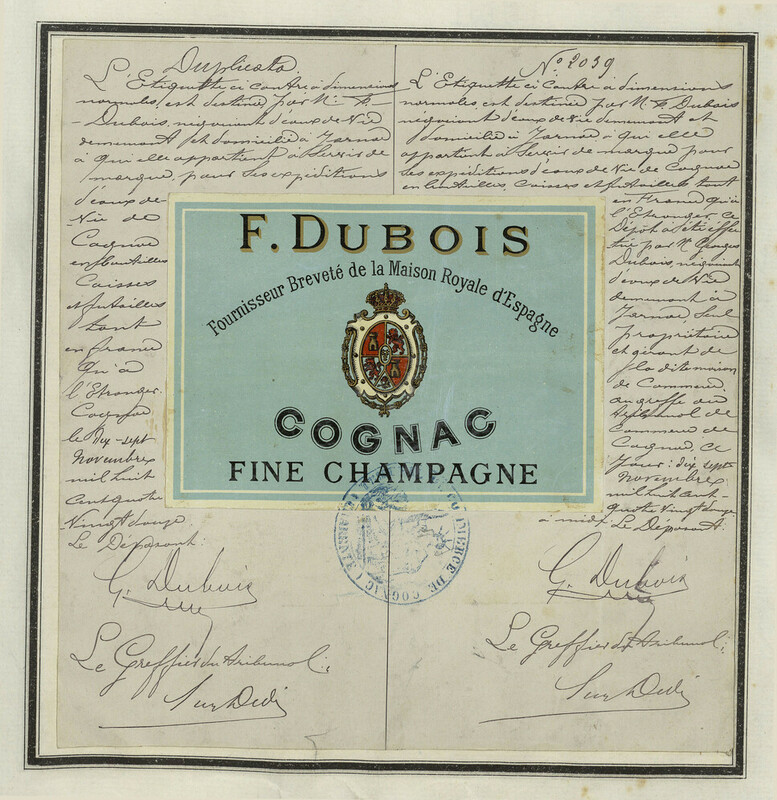 Duplicata
L'Etiquette ci contre à dimensions
normales, est destinée, par Mr F.
Dubois, négociant d'eaux de Vie
demeurant et domicilié à Jarnac
à qui elle appartient à Servir de
marque, pour Ses expéditions
d'eaux de
Vie de
Cognac
en bouteilles
Caisses
et futailles
tant
en france
qu'à
l'Etranger.
Cognac
le dix-sept
Novembre
mil huit
cent quatre
Vingt douze
Le Déposant:
G. Dubois
Le Greffier du tribunal:
N° 2039
L'Etiquette ci contre à dimensions
normales, est destinée par Mr F. Dubois
négociant d'eaux de Vie demeurant et
domicilié à Jarnac à qui elle
appartient à Servir de marque pour
Ses expéditions d'eaux de Vie de Cognac
en bouteilles, Caisses et futailles tant
en France qu'à
l'Etranger. Ce
Dépôt a été effec
tué par Mr Georges
Dubois, négociant
d'eaux de Vie
demeurant à
Jarnac Seul
Propriétaire
et gérant de
la dite maison
de Commerce,
au greffe du
tribunal de
Commerce de
Cognac, ce
Jour: dix sept
Novembre
mil huit cent
quatre Vingt douze
à midi Le Déposant:
G. Dubois
Le Greffier du tribunal:
F. DUBOIS
Fournisseur Breveté de la Maison Royale d'Espagne
COGNAC
FINE CHAMPAGNE
COMMERCE DE COGNAC (CHARENTE)